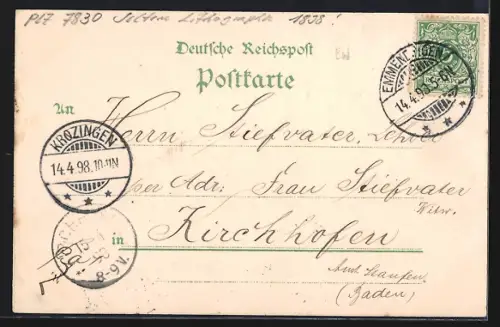 PLZ 7830 Seltene Lithographie 1898!
EW
Deutsche Reichspost
Postkarte
EMMENDINGEN
14.4.98.5-6N
An
Herrn Stiefvater, Lehrer
KROZINGEN
14.4.98.10-11N
per Adr: Frau Stiefvater
Witw.
in Kirchhofen
8-9V.
Amt Staufen
(Baden)